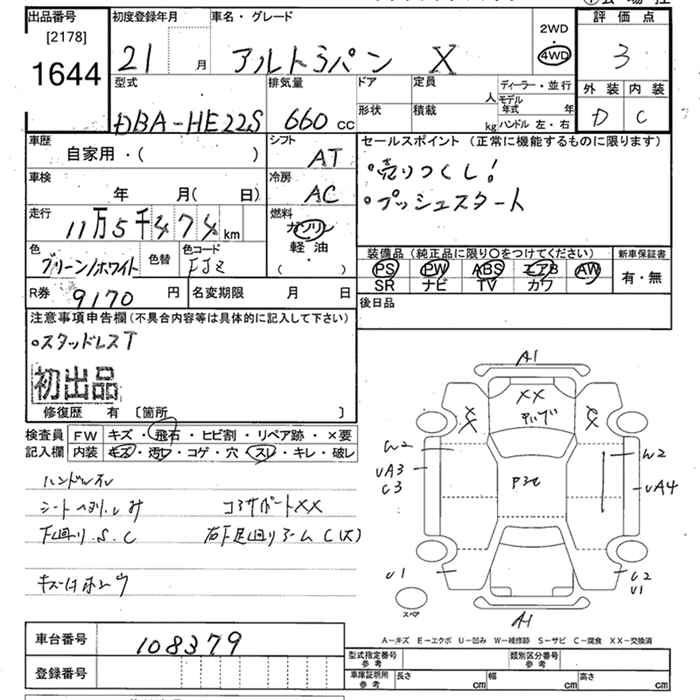 出品番号
[2178]
1644
初度登録年月
21 月
車名・グレード
アルトラパン X
2WD
・
4WD
評価点
3
外装 内装
D C
型式
DBA-HE22S
排気量
660 cc
ドア
形状
定員
人
積載
kg
ディーラー・並行
モデル年式 年
ハンドル 左・右
車歴
自家用・( )
シフト
AT
車検
年 月( 日)
冷房
AC
走行
11万5千474 km
燃料
ガソリン
軽油
( ・ )
色
グリーン/ホワイト
色替
色コード
R券
9170 円
名変期限 月 日
セールスポイント (正常に機能するものに限ります)
・売りつくし!
・プッシュスタート
装備品 (純正品に限り○をつけてください)
PS PW ABS エアB AW
SR ナビ TV カワ
新車保証書
有・無
後日品
注意事項申告欄 (不具合内容等は具体的に記入して下さい)
・スタッドレスT
初出品
修復歴 有 〔箇所 〕
検査員記入欄
FW キズ・飛石・ヒビ割・リペア跡・×要
内装 キズ・汚レ・コゲ・穴・スレ・キレ・破レ
ハンドルスレ
コアサポートXX
下回り.S.C
右下足回りアームC(大)
A1
XX
W2
UA3
C3
W2
UA4
U1
U2
U1
スペア
A1
A-キズ E-エクボ U-凹み W-補修跡 S-サビ C-腐食 XX-交換済
車台番号
108379
登録番号
型式指定番号
参考
類別区分番号
参考
車庫証明用
参考
長さ cm
幅 cm
高さ cm